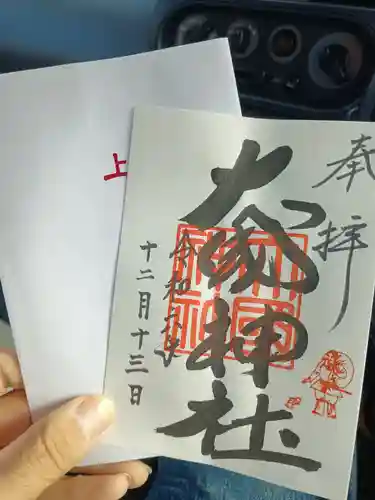 奉拝
大國神社
令和
十二月十三日
上